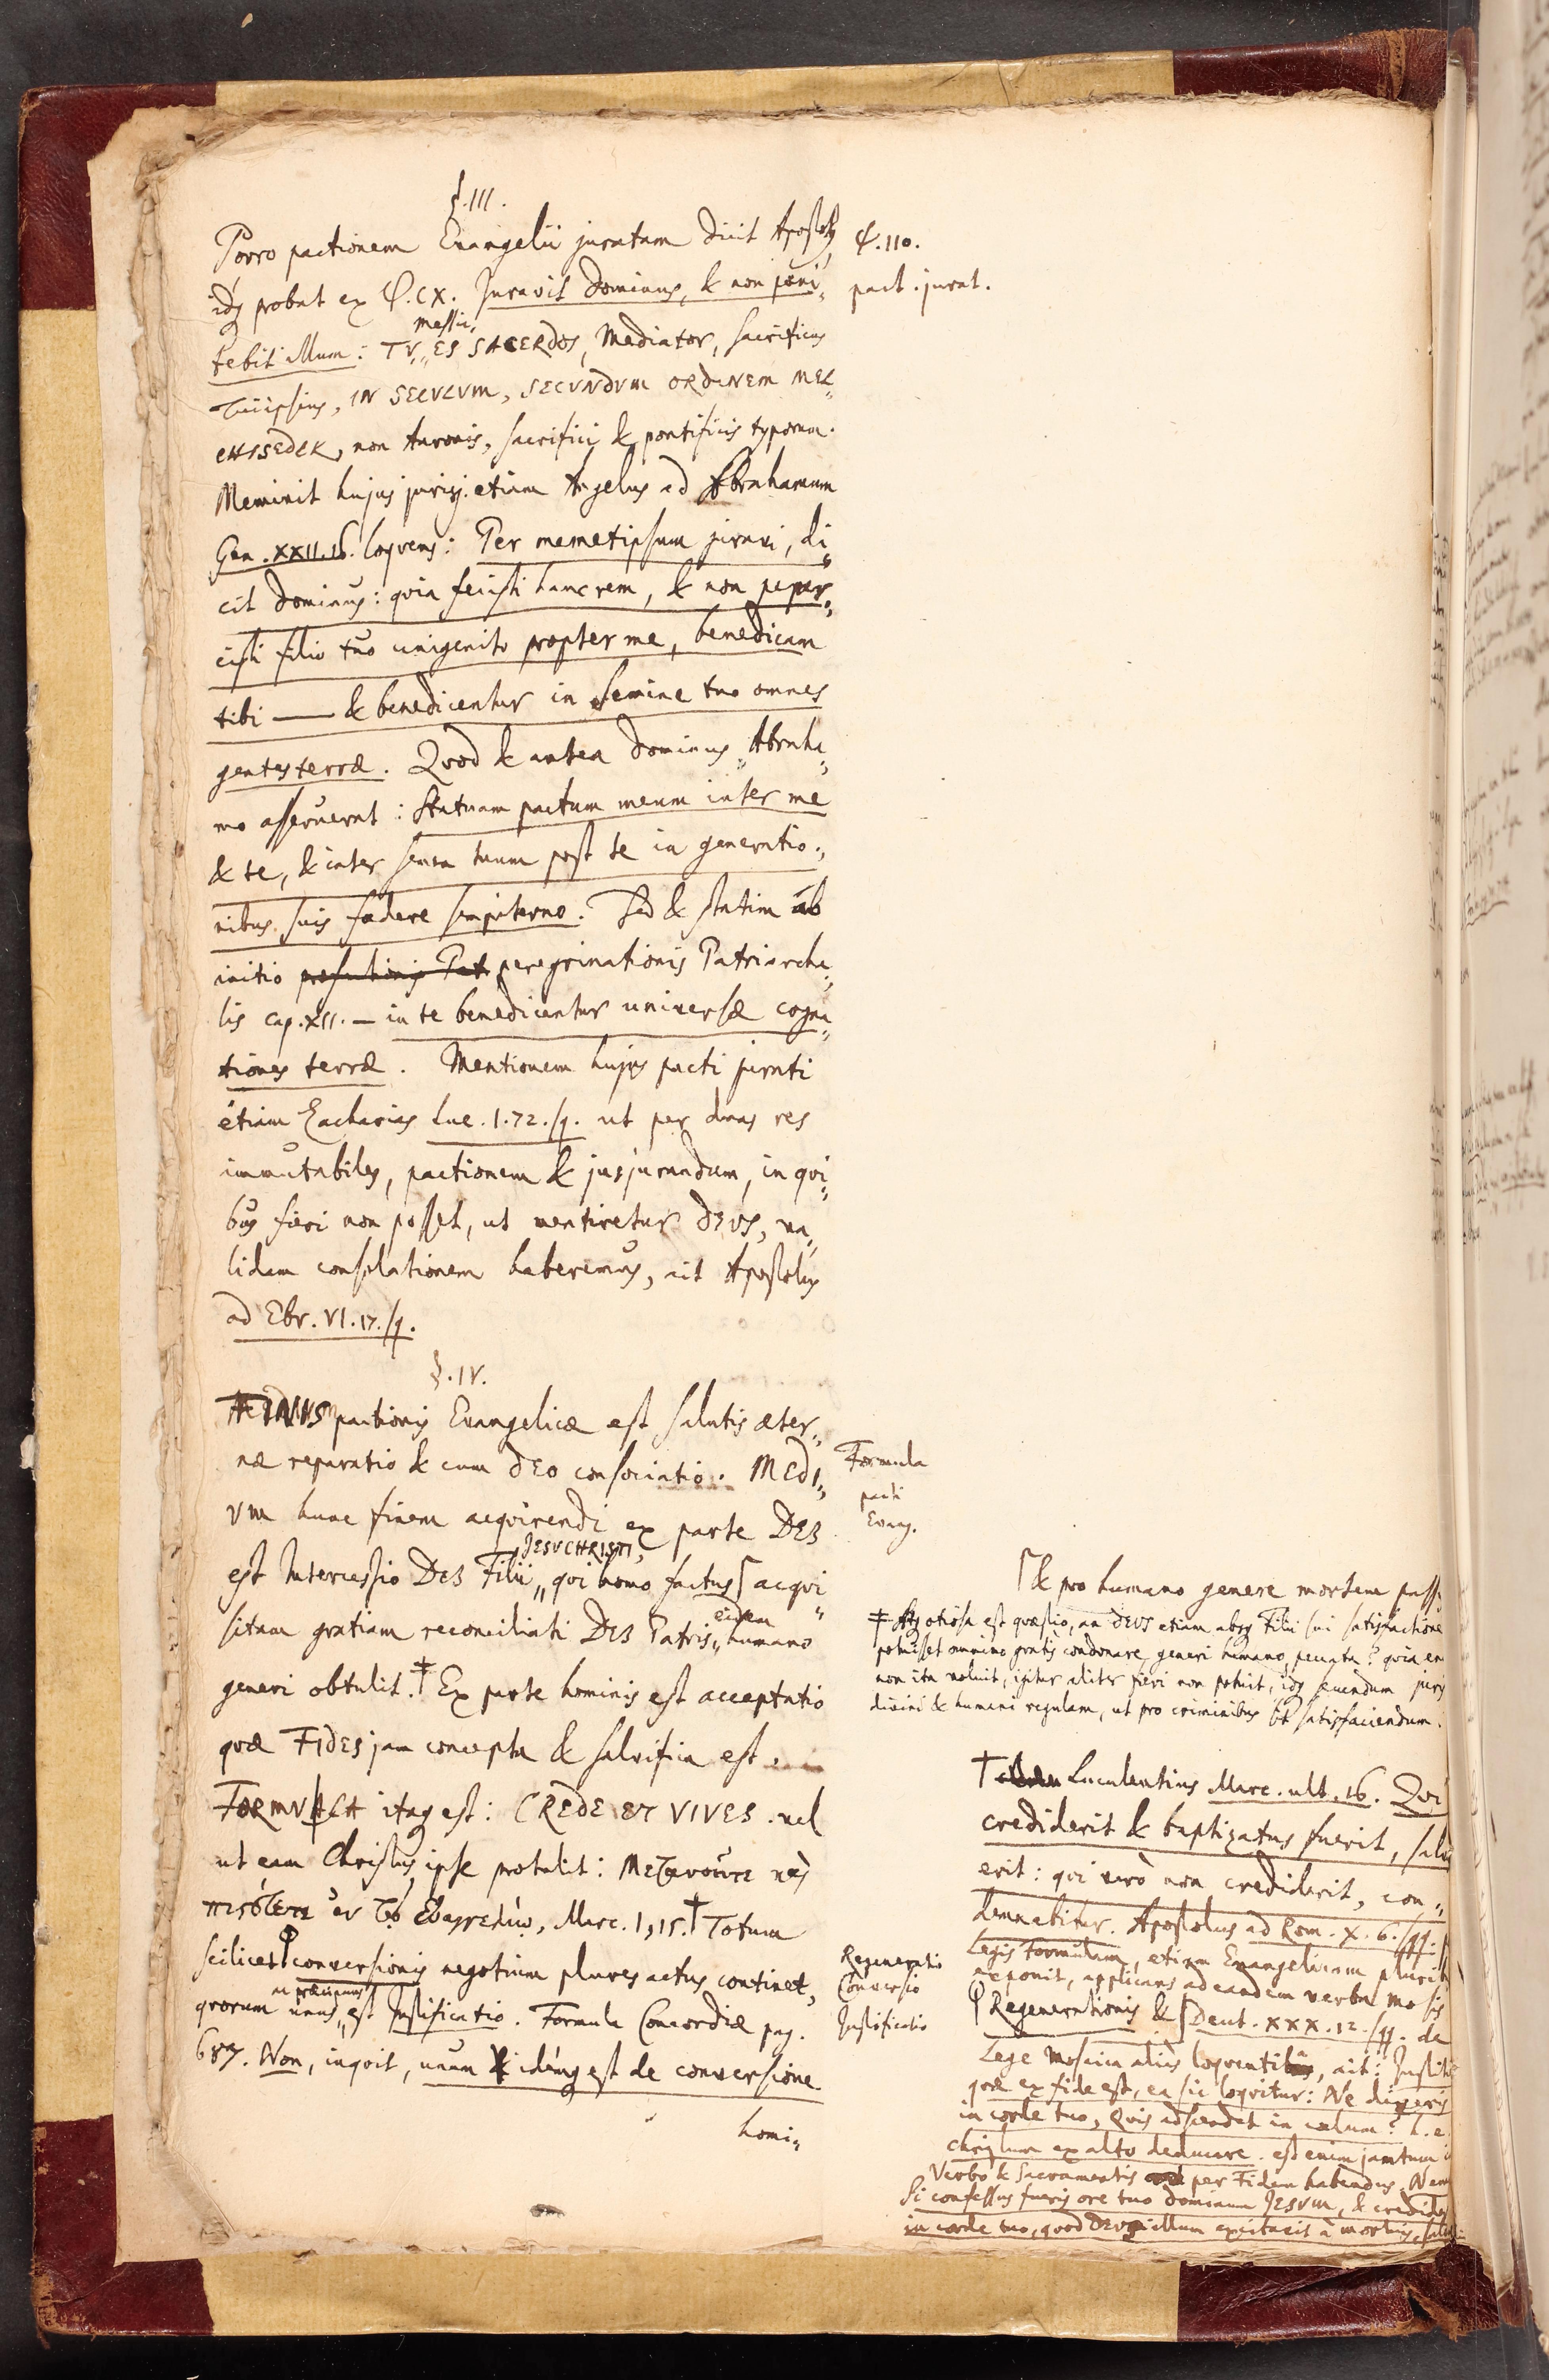 §.III.
Porro pactionem Evangelii juratam dicit Apostolus,
idq; probat ex Ψ.CX. Juravit Dominus, & non pœni„
tebit illum: TU„ Messia, ES SACERDOS, Mediator, sacrificus
Tuiipsius, IN SECULUM, SECUNDUM ORDINEM MEL„
CHISEDEK, non Aaronis, sacrifici & pontificis typorum.
Meminit hujus jurisj. etiam Angelus ad Abrahamum
Gen. XXII.16. loqvens: Per memetipsum juravi, di„
cit Dominus: qvia fecisti hanc rem, & non peper„
cisti filio tuo unigenito propter me, benedicam
tibi — & benedicentur in semine tuo omnes
gentes terræ. Qvod & antea Dominus Abraha„
mo asseruerat: Statuam pactum meum inter me
& te, & inter semen tuum post te in generatio„
nibus suis fœdere sempiterno. Sed & statim ab
initio peregrinationis Patriarcha„
lis cap. XII. — in te benedicentur universæ cogna„
tiones terræ. Mentionem hujus pacti jurati
etiam Zacharias Luc. 1.72. sq. ut per duas res
immutabiles, pactionem & jusjurandum, in qvi„
bus fieri non posset, ut mentiretur DEUS, va„
lidam consolationem haberemus, ait Apostolus
ad Ebr. VI.17. sq.
§.IV.
FINIS pactionis Evangelicæ est salutis æter„
næ reparatio & cum DEO consociatio. MEDI„
UM hunc finem acqvirendi ex parte DEI
est Intercessio DEI Filii„ JESU CHRISTI, qvi homo factus⌈ acqvi„
sitam gratiam reconciliati DEI Patris„ eidem humano
generi obtulit.‡ Ex parte hominis est acceptatio
qvæ FIDES jam concepta & salvifica est.
FORMULA itaq est: CREDE ET VIVES. vel
ut eam Christus ipse protulit: Μετανοεῖτε καὶ
πιστεύετε ἐν τῷ Εὐαγγελίῳ, Marc. 1,15.† Totum
scilicet conversionis negotium plures actus continet,
qvorum unus„ ac præcipuus est Justificatio. Formula Concordiæ pag.
687. Non, inqvit, unum & idemq est de conversione
homi„
Ψ.110.
pact. jurat.
Formula
pacti
Evang.
Regeneratio
Conversio
Justificatio
⌈& pro humano genere mortem passus
‡ Atq otiosa est qvæstio, an DEUS etiam absq Filii sui satisfactione
potuisset omnino gratis condonare generi humano peccata? qvia en
non ita voluit, igitur aliter fieri non potuit, idq secundum juris
divini & humani regulam, ut pro criminibus sit satisfaciendum.
† Luculentius Marc. ult. 16. Qvi
crediderit & baptizatus fuerit, salv
erit: qvi verò non crediderit, con„
demnabitur. Apostolus ad Rom. X. 6. sqq.
Legis formulam, etiam Evangelicam
reponit, applicans ad eandem verba Mosis
Regenerationis & ⌈Deut. XXX.12. sqq. de
Lege Mosaica aliàs loqventis, ait: Justiti
qvæ ex fide est, ea sic loqvitur: Ne dixeris
in corde tuo, Qvis adscendet in cœlum? h.e.
Christum ex alto deducere. est enim jam tum i
Verbo & Sacramentis per Fidem habendus. Nem
Si confessus fueris ore tuo Dominum JESUM, & credide
in corde tuo, qvod DEUS illum excitavit à mortuis, salv